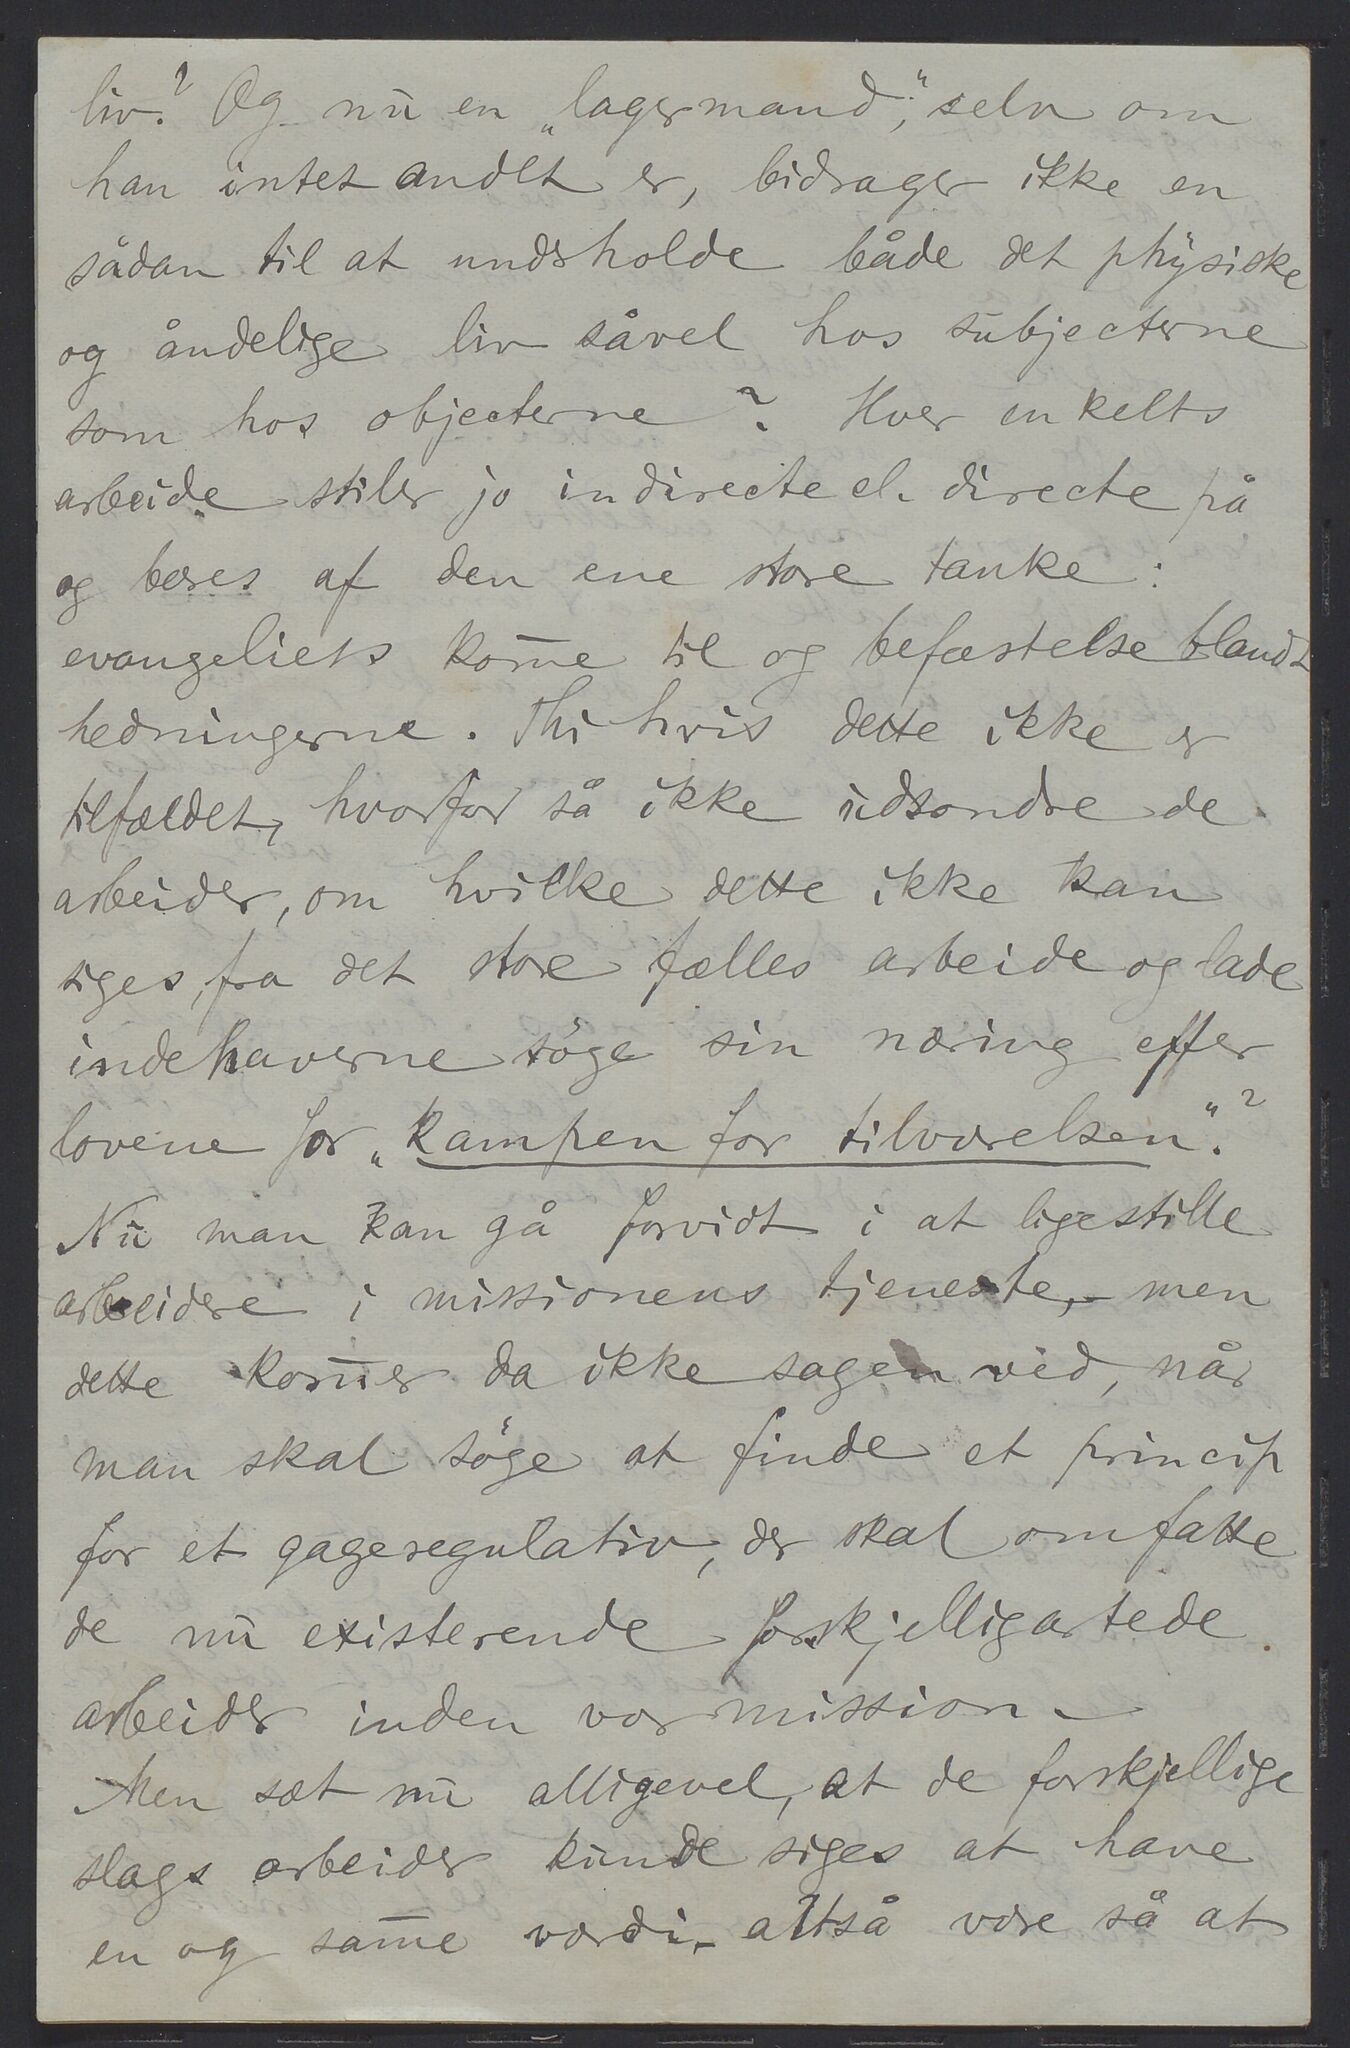 liv? Og nu en „lagermand“, selv om
han intet andet er, bidrager ikke en
sådan til at underholde både det physiske
og åndelige liv såvel hos subjecterne
som hos objecterne? Hver enkelts
arbeide stiler jo indirecte el. directe på
og bæres af den ene store tanke:
evangeliets kom̄e til og befæstelse blandt
hedningerne. Thi hvis dette ikke er
tilfældet, hvorfor så ikke udsondre de
arbeider, om hvilke dette ikke kan
siges, fra det store fælles arbeide og lade
indehaverne söge sin næring efter
lovene for „kampen for tilværelsen“?
Nu man kan gå forvidt i at ligestille
arbeidere i missionens tjeneste, – men
dette kom̄er da ikke sagen ved, når
man skal söge at finde et princip
for et gageregulativ, der skal omfatte
de nu existerende forskjelligartede
arbeider inden vor mission. –
Men sæt nu alligevel, at de forskjellige
slags arbeider kunde siges at have
en og sam̄e værdi, – altså være så at